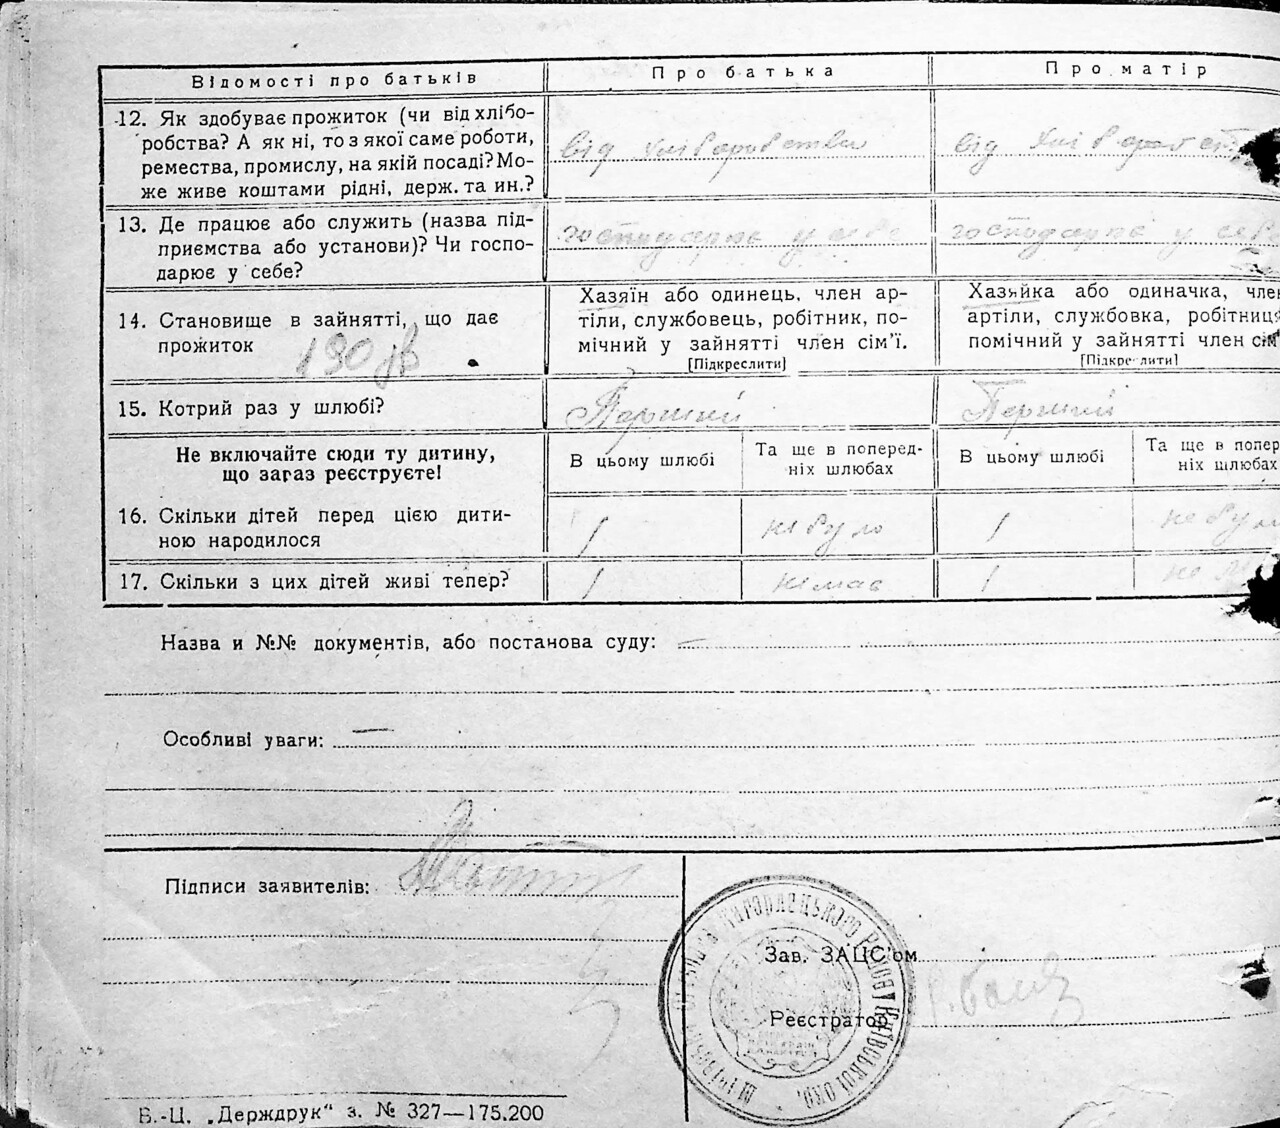 Відомості про батьків
Про батька
Про матір
12. Як здобуває прожиток (чи від хлібо-
робства? А як ні, то з якої саме роботи,
ремества, промислу, на якій посаді? Мо-
же живе коштами рідні, держ. та ин.?
від хліборобства
від хліборобст
13. Де працює або служить (назва під-
приємства або установи)? Чи госпо-
дарює у себе?
господарює у себе
господарює у себе
14. Становище в зайнятті, що дає
прожиток
190
Хазяїн або одинець, член ар-
тіли, службовець, робітник, по-
мічний у зайнятті член сім'ї.
[Підкреслити]
Хазяйка або одиначка, член
артіли, службовка, робітниця
помічний у зайнятті член сім'
[Підкреслити]
15. Котрий раз у шлюбі?
Перший
Перший
Не включайте сюди ту дитину,
що загаз реєструєте!
В цьому шлюбі
Та ще в поперед-
ніх шлюбах
В цьому шлюбі
Та ще в попер
ніх шлюбах
16. Скільки дітей перед цією дити-
ною народилося
1
не було
1
не було
17. Скільки з цих дітей живі тепер?
1
немає
1
не
Назва и №№ документів, або постанова суду: —
Особливі уваги: —
Підписи заявителів:
Зав. ЗАЦС'ом
Реєстратор
В.-Ц. „Держдрук" з. № 327—175.200